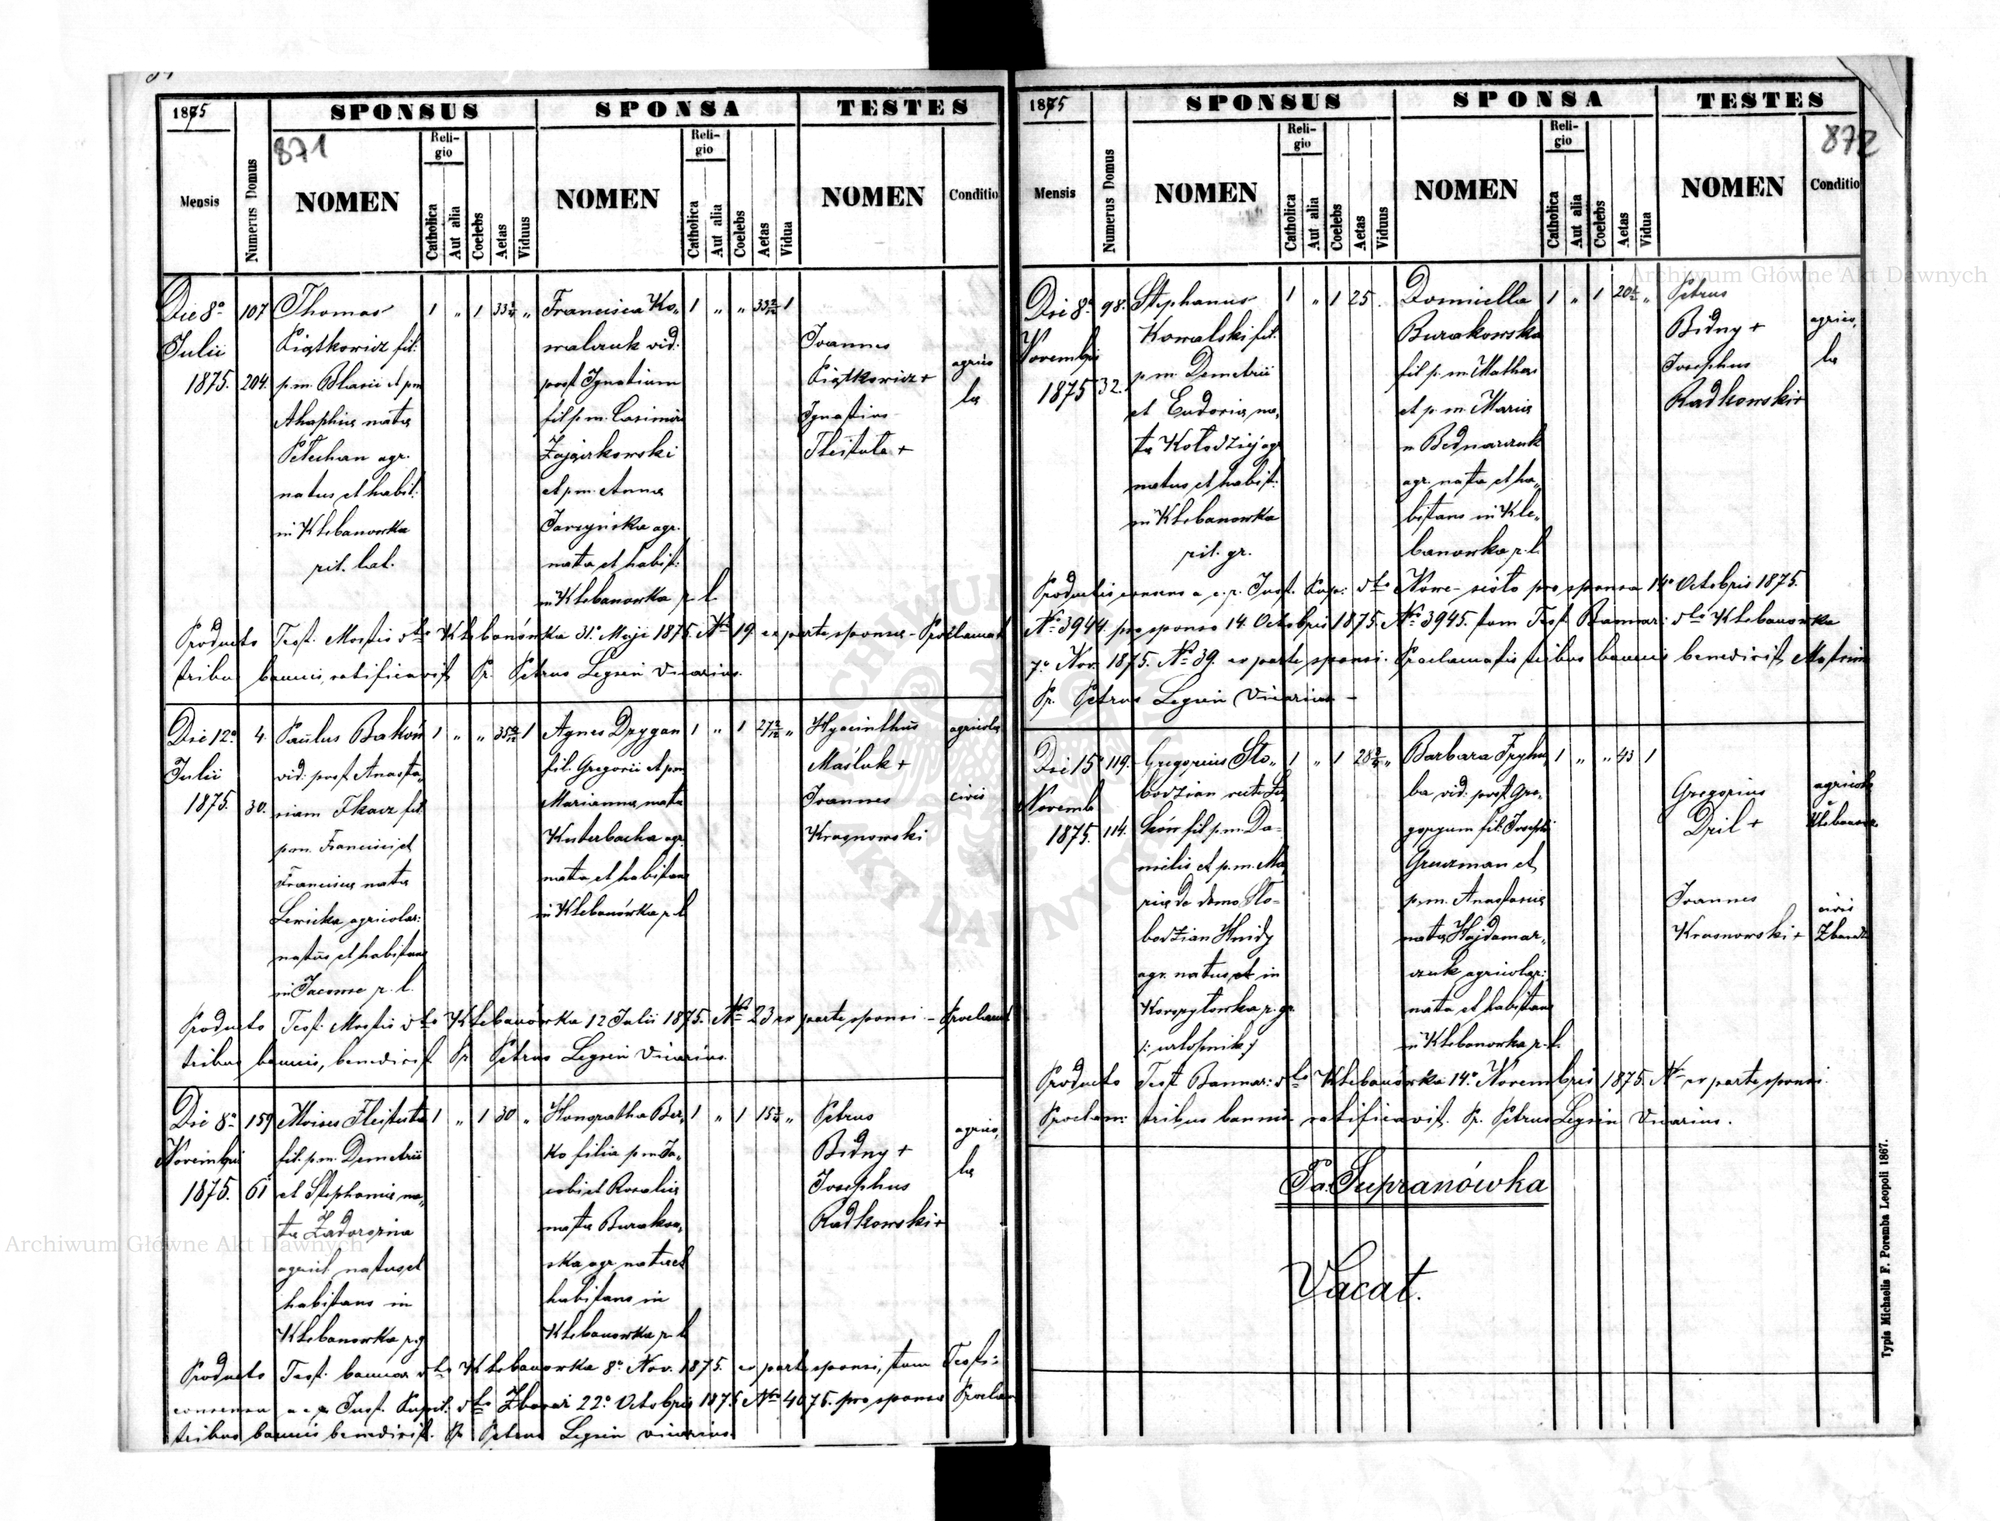 1875
SPONSUS
SPONSA
TESTES
871
Mensis
Numerus Domus
NOMEN
Religio
Catholica
Aut alia
Coelebs
Aetas
Viduus
NOMEN
Religio
Catholica
Aut alia
Coelebs
Aetas
Vidua
NOMEN
Conditio
Die 8º
Julii
1875.
107
204.
Thomas
Piątkowicz fil.
p.m. Blasii et p.m.
Ahaphiae natae
Petechan agr.
natus et habit.
in Klebanowka
rit. lat.
1 „ 1 „
Francisca Ko„
walczuk vid.
post Ignatium
fil p.m. Casimiri
Zajączkowski
et p.m. Annae
agr.
nata et habit.
in Klebanowka r. l.
1 „ „ 1
Joannes
Piątkowicz +
Ignatius
Fleituta +
agrico
lae
Producto Test. Mortis dto Klebanówka 31º Maji 1875 Nro 19. ex parte sponsae - Proclamat
tribus bannis, ratificavit Pr. Petrus Legsin Vicarius.
Die 12º
Julii
1875.
4.
30.
Paulus Bakon
vid. post Anasta„
siam Tkacz fil.
p.m. Francisci et
Franciscae natae
Lewicka agricolar:
natus et habitans
in Jacowce r. l.
1 „ „ 1
Agnes Drygan
fil. Gregorii et p.m.
Mariannae natae
Kuterbacha agr.
nata et habitans
in Klebanówka r. l.
1 „ 1 „
Hyacinthus
Maśluk +
Joannes
Krasnowski
agricola
civis
Producto Test. Mortis dto Klebanówka 12 Julii 1875. Nro 23 ex parte sponsi - Proclamat
tribus bannis, benedixit Pr. Petrus Legsin Vicarius.
Die 8º
Novembris
1875.
159
61
Moises Fleituta
fil. p.m. Demetrii
et Stephaniae na„
tae Zadorozna
agricol. natus et
habitans in
Klebanowka r. g
1 „ 1 30 „
Honoratha Ber„
ko filia p.m. Ja„
cobi et Rosaliae
natae Burakow„
ska agr natus et
habitans in
Klebanowka r. l
1 „ 1 „
Petrus
Bidny +
Josephus
Radkowski +
agrico,
lae
Producto Test. bannor. dto Klebanowka 8º Nov. 1875. ex parte sponsi, tum Testi:
consensu a c. r. Just. Kupit. dto Zbaraż 22º Octobris 1875 Nro 4076. pro sponsa Proclam
tribus bannis benedixit. Pr. Petrus Legsin vicarius.
1875
SPONSUS
SPONSA
TESTES
872
Mensis
Numerus Domus
NOMEN
Religio
Catholica
Aut alia
Coelebs
Aetas
Viduus
NOMEN
Religio
Catholica
Aut alia
Coelebs
Aetas
Vidua
NOMEN
Conditio
Die 8º
Novembris
1875
98.
32.
Stephanus
Kowalski fil.
p.m. Demetrii
et Eudoxiae na„
tae Kołodziej agr
natus et habit.
in Klebanowka
rit. gr.
1 „ 1 25.
Domicella
Burakowska
fil p.m. Mathaei
et p.m. Mariae
n Bednarczuk
agr. nata et ha„
bitans in Kle„
banowka r. l.
1 „ 1 „
Petrus
Bidny +
Josephus
Radkowski +
agrico,
lae
Productis consens a c. r. Just. Kup: dto Nowe-sioło pro sponsa 14º Octobris 1875.
Nro 3944. pro sponso 14. Octobris 1875. Nro 3945. tum Test. Bannor: dto Klebanowka
7º Nov. 1875. Nro 39. ex parte sponsi. Proclamatis tribus bannis benedixit Matrim
Pr. Petrus Legsin Vicarius -
Die 15º
Novemb
1875.
119.
114.
Gregorius Sło„
bodzian recte
fil p.m. Da„
nielis et p.m. Ma
riae de domo Sło„
bodzian Hnidy
agr. natus et in
Koszytowka r. gr.
/: urlopnik :/
1 „ 1 „
Barbara
ba vid. post Gre„
gorium fil. Josephi
Gruzman et
p.m. Anastasiae
natae Hajdamar„
czuk agricolar:
nata et habitans
in Klebanowka r. l.
1 „ „ 43 1
Gregorius
Dril +
Joannes
Krasnowski +
agricola
Klebanow
civis
Zbaraż
Producto Test Bannor: dto Klebanówka 14º Novembris 1875. Nr ex parte sponsi.
Proclam: tribus bannis ratificavit. Pr. Petrus Legsin Vicarius.
Pa. Supranówka
Vacat.
Typis Michaelis F. Poremba Leopoli 1867.
Archiwum Główne Akt Dawnych
Archiwum Główne Akt Dawnych
ARCHIWUM GŁÓWNE AKT DAWNYCH